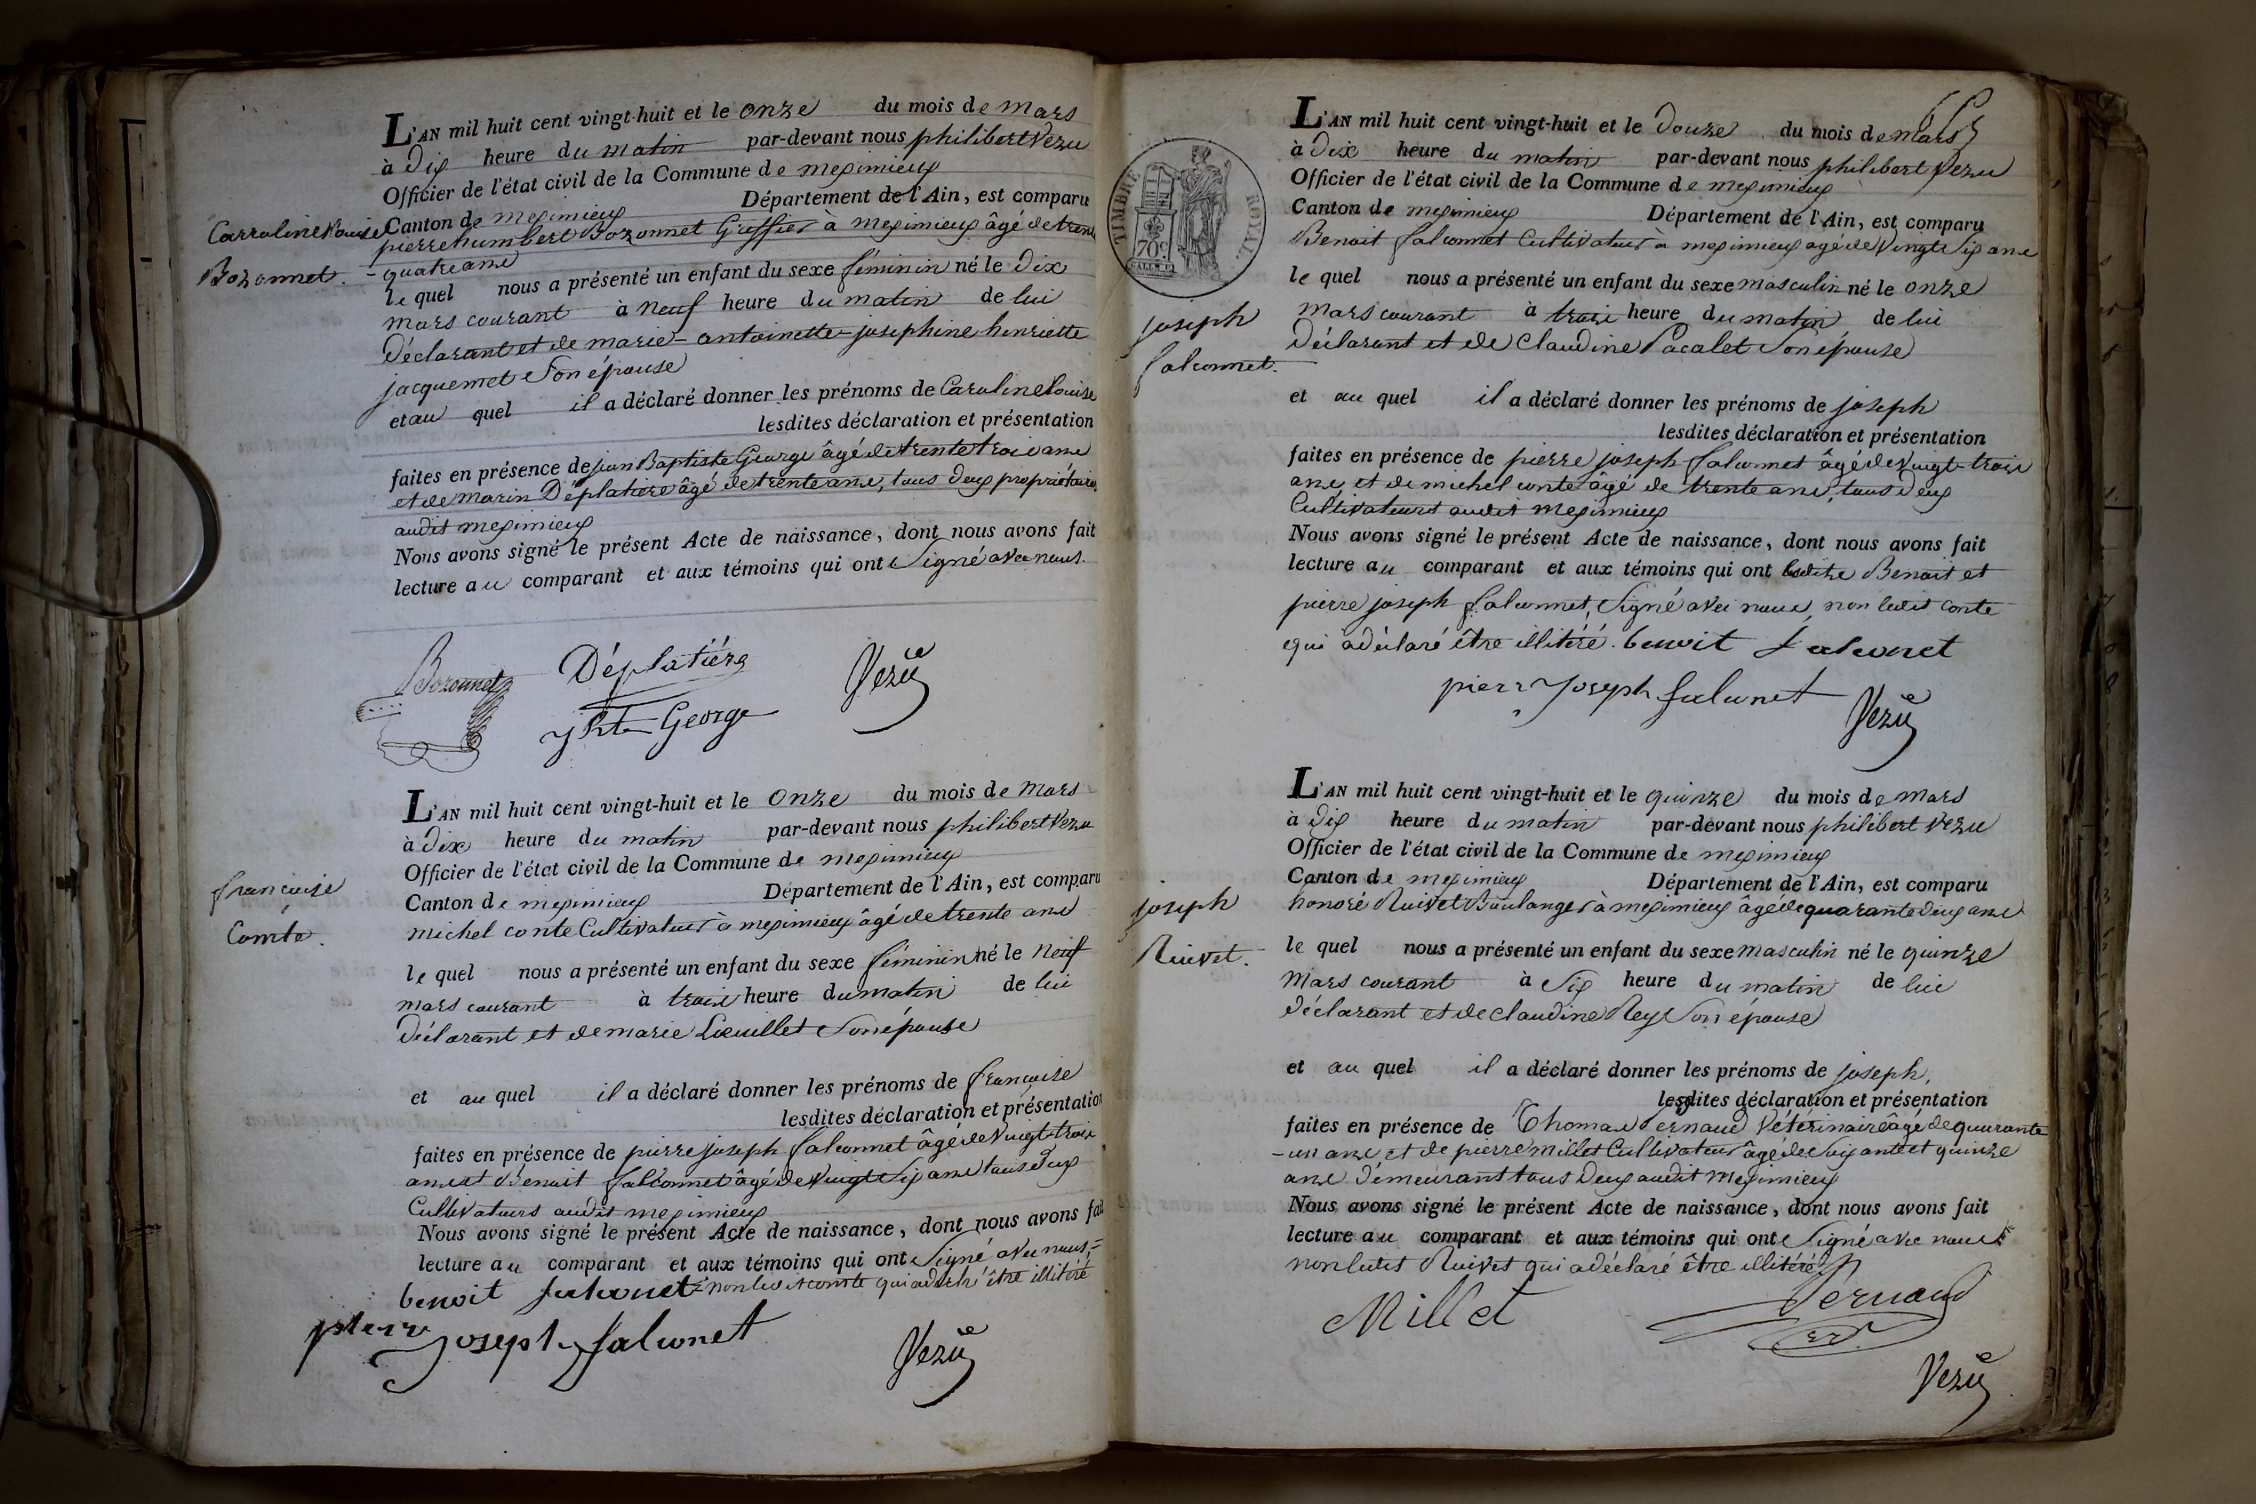 L'AN mil huit cent vingt-huit et le onze du mois de mars
à dix heure du matin par-devant nous philibert Vezu
Officier de l'état civil de la Commune de meximieux
Canton de meximieux Département de l'Ain, est comparu
pierre humbert Bozonnet Greffier à meximieux âgé de trente
- quatre ans
le quel nous a présenté un enfant du sexe féminin né le dix
mars courant à neuf heure du matin de lui
Déclarant et de marie-antoinette-josephine henriette
jacquemet Son épouse
et au quel il a déclaré donner les prénoms de Caroline Louise
lesdites déclaration et présentation
faites en présence de jean Baptiste George âgé de trente trois ans
et de marin Déplatière âgé de trente ans, tous deux propriétaires
audit meximieux
Nous avons signé le présent Acte de naissance, dont nous avons fait
lecture au comparant et aux témoins qui ont Signé avec nous.
Carroline Louise
Bozonnet.
Bozonnet Déplatière Vezu
George
L'AN mil huit cent vingt-huit et le onze du mois de mars
à dix heure du matin par-devant nous philibert Vezu
Officier de l'état civil de la Commune de meximieux
Canton de meximieux Département de l'Ain, est comparu
michel conte Cultivateur à meximieux âgé de trente ans
le quel nous a présenté un enfant du sexe féminin né le neuf
mars courant à trois heure du matin de lui
déclarant et de marie Son épouse
et au quel il a déclaré donner les prénoms de françoise
lesdites déclaration et présentation
faites en présence de pierre joseph falconnet âgé de vingt-trois
ans et Benoit falconnet âgé de vingt Six ans tous deux
Cultivateurs audit meximieux
Nous avons signé le présent Acte de naissance, dont nous avons fait
lecture au comparant et aux témoins qui ont Signé avec nous,=
benoit falconet = non ledit conte qui a déclé être illitéré
françoise
Comte.
pierr Joseph falconet
Vezu
TIMBRE ROYAL
70c
L'AN mil huit cent vingt-huit et le douze du mois de mars
à dix heure du matin par-devant nous philibert Vezu
Officier de l'état civil de la Commune de meximieux
Canton de meximieux Département de l'Ain, est comparu
Benoit falconnet Cultivateur à meximieux agé de vingt Six ans
le quel nous a présenté un enfant du sexe masculin né le onze
mars courant à trois heure du matin de lui
Déclarant et de Claudine Pacalet Son épouse
et au quel il a déclaré donner les prénoms de joseph
lesdites déclaration et présentation
faites en présence de pierre joseph falconnet âgé de vingt-trois
ans, et de michel conte âgé de trente ans, tous deux
Cultivateurs audit meximieux
Nous avons signé le présent Acte de naissance, dont nous avons fait
lecture au comparant et aux témoins qui ont Benoit et
pierre joseph falconnet, Signé avec nous, non ledit conte
qui a déclaré être illitéré. benoit falconet
joseph
falconnet.
pierr Joseph falconet
Vezu
L'AN mil huit cent vingt-huit et le quinze du mois de mars
à dix heure du matin par-devant nous philibert Vezu
Officier de l'état civil de la Commune de meximieux
Canton de meximieux Département de l'Ain, est comparu
honoré Ruivet Boulanger à meximieux âgé de quarante deux ans
le quel nous a présenté un enfant du sexe masculin né le quinze
mars courant à Six heure du matin de lui
déclarant et de claudine Rey Son épouse
et au quel il a déclaré donner les prénoms de joseph,
lesdites déclaration et présentation
faites en présence de Thomas Pernaud Vétérinaire âgé de quarante
- un ans et de pierre millet Cultivateur âgé de Soixante et quinze
ans demeurant tous deux audit meximieux
Nous avons signé le présent Acte de naissance, dont nous avons fait
lecture au comparant et aux témoins qui ont Signé avec nous
non ledit Ruivet qui a déclaré être illitéré
joseph
Ruivet.
Millet Pernaud
Vezu